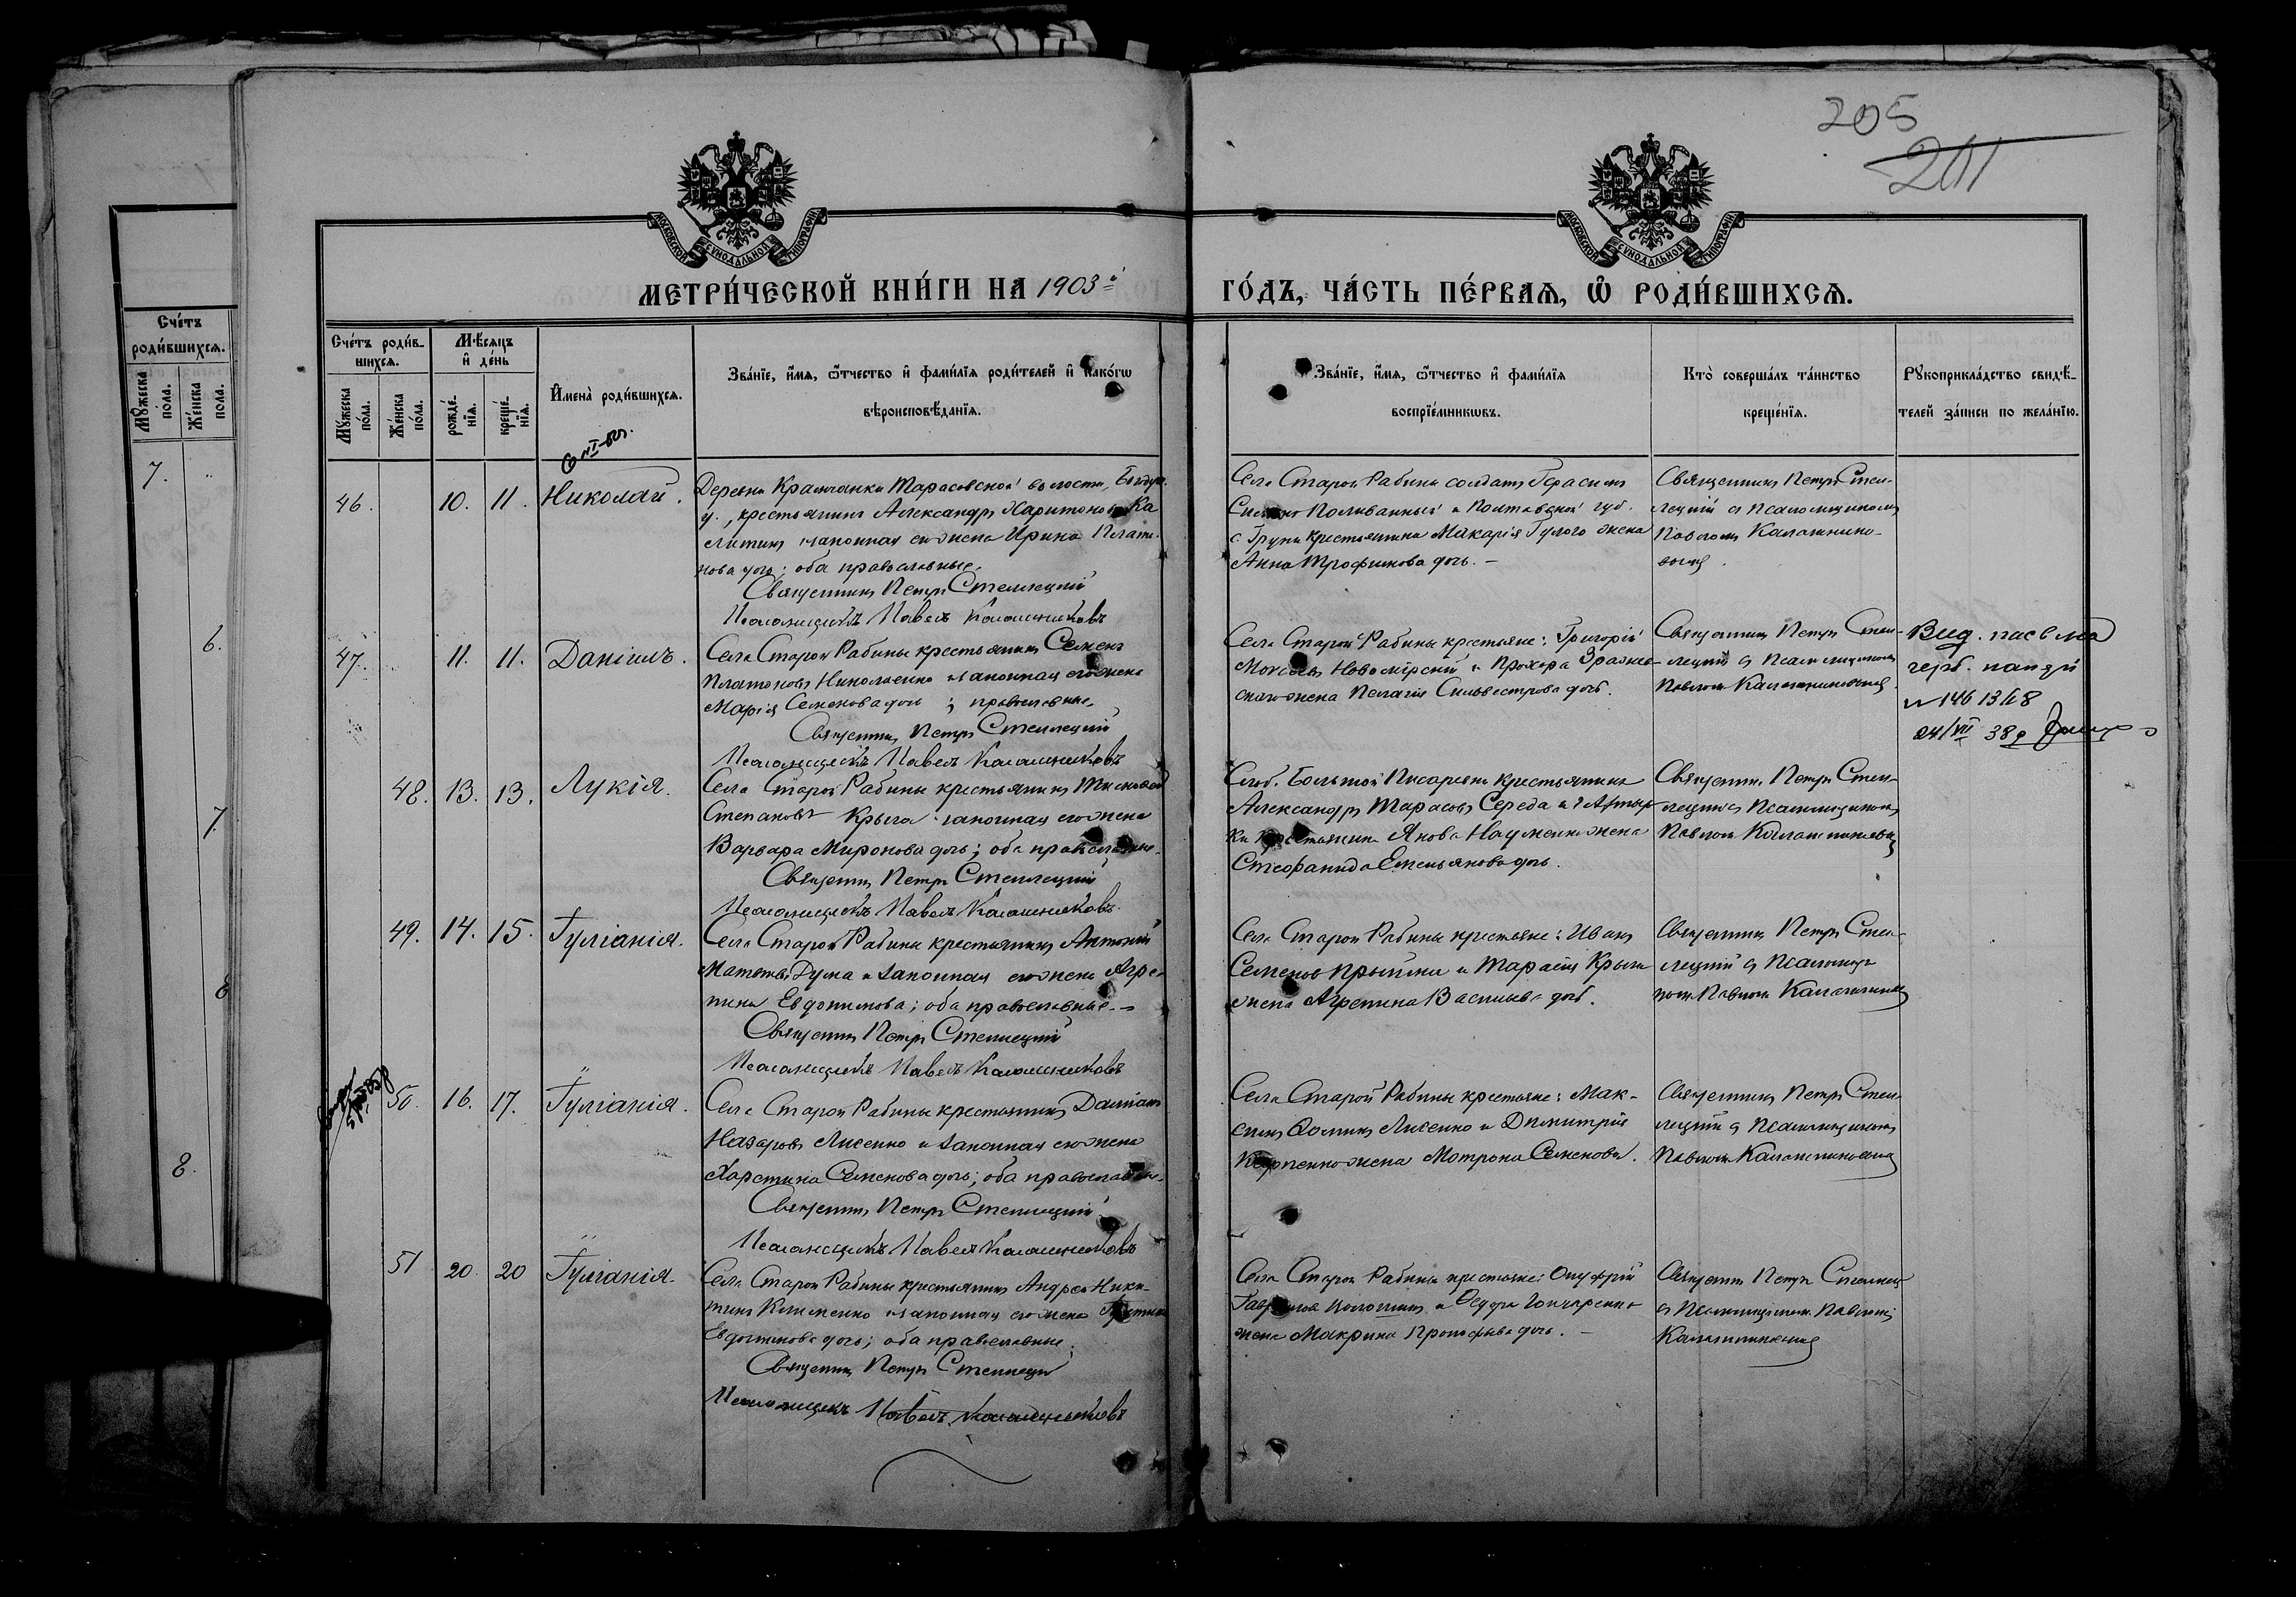 205
211
МОСКОВСКОЙ СУНОДАЛЬНОЙ ТИПОГРАФІИ
МОСКОВСКОЙ СУНОДАЛЬНОЙ ТИПОГРАФІИ
МЕТРИ́ЧЕСКОЙ КНИ́ГИ НА 1903й
ГО́ДЪ, ЧА́СТЬ ПЕ́РВАѦ, Ѡ҆ РОДИ́ВШИХСѦ.
Сче́тъ
роди́вшихсѧ.
Мꙋ́жеска
по́ла.
Же́нска
по́ла.
7. "
6.
7.
8
8.
Сче́тъ роди́в-
шихсѧ.
Мꙋ́жеска
по́ла.
Же́нска
по́ла.
Мѣ́сѧцъ
и҆ де́нь
рожде́-
нїѧ.
креще́-
нїѧ.
И҆мена̀ роди́вшихсѧ.
Зва́нїе, и҆́мѧ, ѻ҆́тчество и҆ фами́лїѧ роди́телей и҆ како́гѡ
вѣроисповѣ́данїѧ.
Зва́нїе, и҆́мѧ, ѻ҆́тчество и҆ фами́лїѧ
воспрїе́мникѡвъ.
Кто̀ соверша́лъ та́инство
креще́нїѧ.
Рꙋкоприкла́дство свидѣ́-
телей за́писи по жела́нїю.
46. 10. 11. Николай.
Деревни Крамчанки Тарасовской волости, Богодух.
у., крестьянинъ Александръ Харитоновъ Ка
литинъ и законная его жена Ирина Плато-
нова дочь; оба православные.
Священникъ Петръ Стеллецкій
Псаломщикъ Павелъ Калашниковъ
Села Старой Рабины солдатъ Герасимъ
Поливанный и Полтавской губ.
с. Груни крестьянина Макарія Гулого жена
Анна Трофимова дочь. –
Священникъ Петръ Стел-
лецкій съ псаломщикомъ
Павломъ Калашнико-
вымъ.
47. 11. 11. Даніилъ.
Села Старой Рабины крестьянинъ Семенъ
Платоновъ Николаенко и законная его жена
Марія Семенова дочь; православные.
Священникъ Петръ Стеллецкій
Псаломщикъ Павелъ Калашниковъ
Села Старой Рабины крестьяне: Григорій
Новомірскій и Прохора
жена Пелагія Сильвестрова дочь.
Священникъ Петръ Стел-
лецкій съ псаломщикомъ
Павломъ Калашниковымъ
Вид. пасв на
герб. папэрі
№ 1461368
24/VII 38 р
48. 13. 13. Лукія.
Села Старой Рабины крестьянинъ Тимофей
Степановъ Крыга и законная его жена
Варвара Миронова дочь; оба православные.
Священникъ Петръ Стеллецкій
Псаломщикъ Павелъ Калашниковъ.
Слоб. Большой Писаревки крестьянинъ
Александръ Тарасовъ Середа и г. Ахтыр
ки крестьянина Якова Науменко жена
Стефанида Емельянова дочь.
Священникъ Петръ Стел-
лецкій съ псаломщикомъ
Павломъ Калашниковымъ
49. 14. 15. Гуліанія.
Села Старой Рабины крестьянинъ Антоній
Матвѣевъ Дума и законная его жена Агре-
пина Евдокимова; оба православные. –
Священникъ Петръ Стеллецкій
Псаломщикъ Павелъ Калашниковъ
Села Старой Рабины крестьяне: Иванъ
Семеновъ Прыйма и Тарасія Крыги
жена Агрепина Васильева дочь.
Священникъ Петръ Стел-
лецкій съ псаломщи-
комъ Павломъ Калашниковымъ
50. 16. 17. Гуліанія.
Села Старой Рабины крестьянинъ Даміанъ
Назаровъ Лисенко и законная его жена
Харетина Семенова дочь; оба православные.
Священникъ Петръ Стеллецкій
Псаломщикъ Павелъ Калашниковъ
Села Старой Рабины крестьяне: Мак-
симъ Ѳоминъ Лисенко и Димитрія
Карпенко жена Мотрона Семенова.
Священникъ Петръ Стел-
лецкій съ псаломщикомъ
Павломъ Калашниковымъ
51 20. 20 Гуліанія.
Села Старой Рабины крестьянинъ Андрей Ники-
тинъ Клименко и законная его жена
Евдокимова дочь; оба православные.
Священникъ Петръ Стеллецкій
Псаломщикъ Павелъ Калашниковъ
Села Старой Рабины крестьяне: Онуфрій
и Ѳедора Гончаренко
жена Макрина Прокофьева дочь. –
Священникъ Петръ Стеллец
съ псаломщикомъ Павломъ
Калашниковымъ